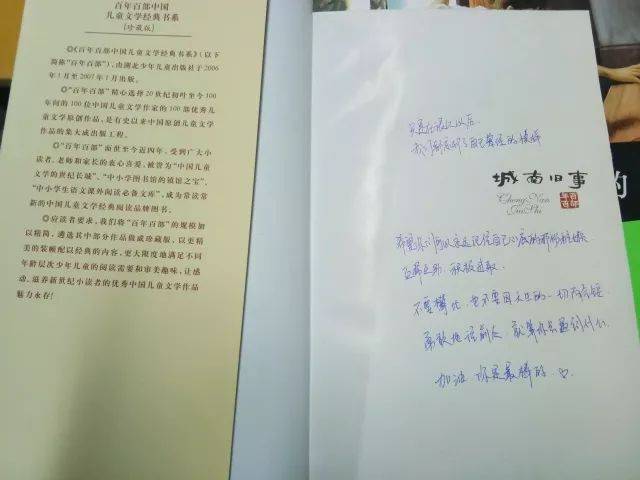 百年百部中国
儿童文学经典书系
[珍藏版]
◎《百年百部中国儿童文学经典书系》(以下
简称"百年百部"),由湖北少年儿童出版社于2006
年1月至2007年1月出版。
◎"百年百部"精心选择20世纪初叶至今100
年间的100位中国儿童文学作家的100部优秀儿
童文学原创作品,是有史以来中国原创儿童文学
作品的集大成出版工程。
◎"百年百部"面世至今近四年,受到广大小
读者、老师和家长的衷心喜爱,被誉为"中国儿童
文学的世纪长城"、"中小学图书馆的镇馆之宝"、
"中小学生语文课外阅读必备文库",成为常读常
新的中国儿童文学经典阅读品牌图书。
◎应读者要求,我们将"百年百部"的规模加
以精简,遴选其中部分作品做成珍藏版,以更精
美的装帧配以经典的内容,更大限度地满足不同
年龄层次少年儿童的阅读需要和审美趣味,让感
动、滋养新世纪小读者的优秀中国儿童文学作品
魅力永存!
以后
我 自己曾经的模样
城南旧事
Cheng Nan
Jiu Shi
百年百部
的
希望你们可以永远记住自己心底的那
互帮互助,积极进取。
不要攀比,也不要因 的一切
勇敢地往前走 就算你
加油 你是最棒的